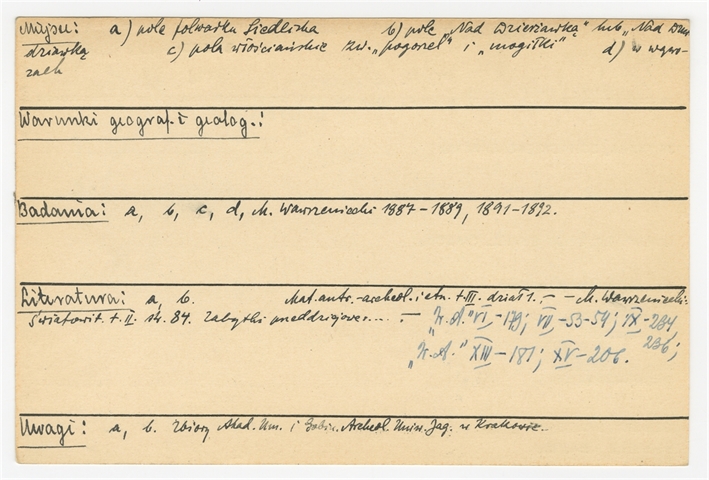 Miejsc: a) pole folwarku Siedliska b) pole „Nad Dzierżawką" lub „Nad Dzier
dziawką c) pola włościańskie zw. „pogorzel" i „mogiłki" d) w wąwo-
zach
Warunki geograf. i geolog.:
Badania: a, b, c, d, M. Wawrzeniecki 1887-1889, 1891-1892.
Literatura: a, b. Mat. antr.-archeol. i etn. t. III. dział 1. — M. Wawrzeniecki:
Światowit. t. II. str. 84. Zabytki przeddziejowe... — „Z.A." VI-179; VII-53-54; IX-234,
236;
„Z.A." XIII-181; XV-206.
Uwagi: a, b. Zbiory Akad. Um. i Gabin. Archeol. Uniw. Jag. w Krakowie.